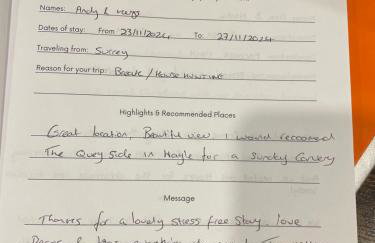 Names: Andy &
Dates of stay: From 23/11/2024 To: 27/11/2024
Traveling from: Surrey
Reason for your trip: Break / House HUNTING
Highlights & Recommended Places
Great location, Beautiful view I would recoomed
The Quey side in Hayle for a Sunday Carvery
Message
Thanks for a lovely stress free stay. love